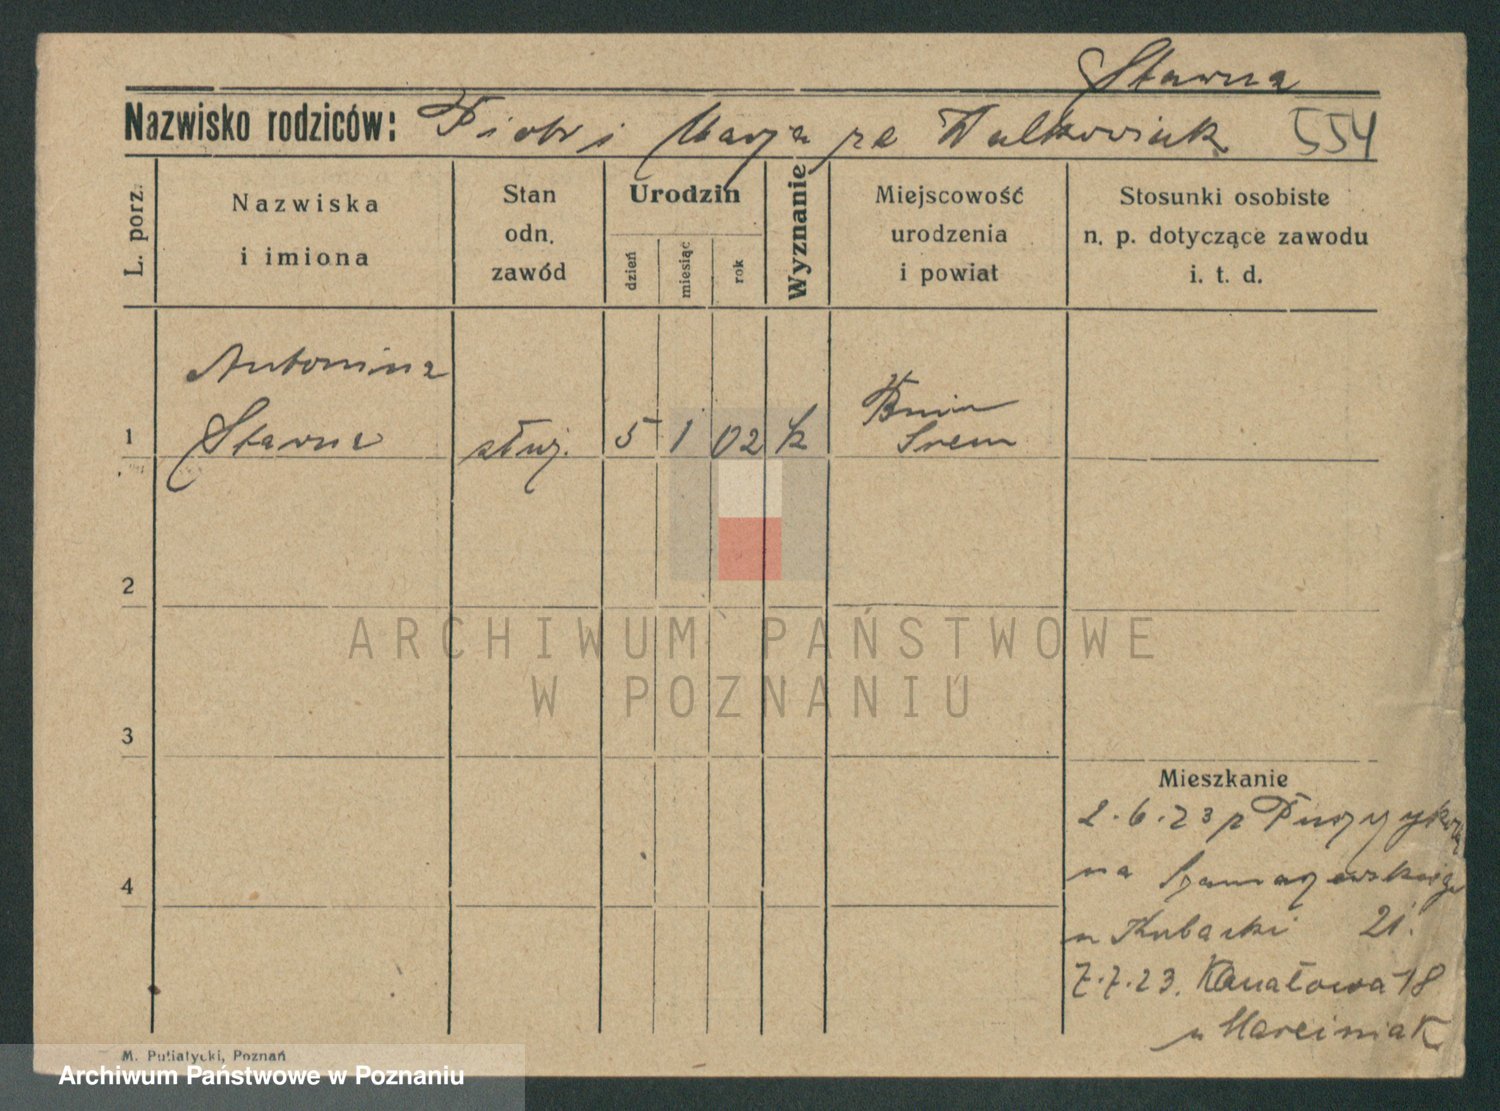 Sławna
Nazwisko rodziców: Piotr i Marja ze Walkowiak 554
L. porz.
Nazwiska
i imiona
Stan
odn.
zawód
Urodzin
dzień
miesiąc
rok
Wyznanie
Miejscowość
urodzenia
i powiat
Stosunki osobiste
n. p. dotyczące zawodu
i. t. d.
Antonina
1 Sławna służ. 5 1 02 k Bnin
Śrem
2
3
4
ARCHIWUM PAŃSTWOWE
W POZNANIU
Mieszkanie
2.6.23 z
na Szamarzewskiego
u Kubacki 21.
7.7.23. Kanałowa 18
u Marciniak
M. Putiatycki, Poznań
Archiwum Państwowe w Poznaniu